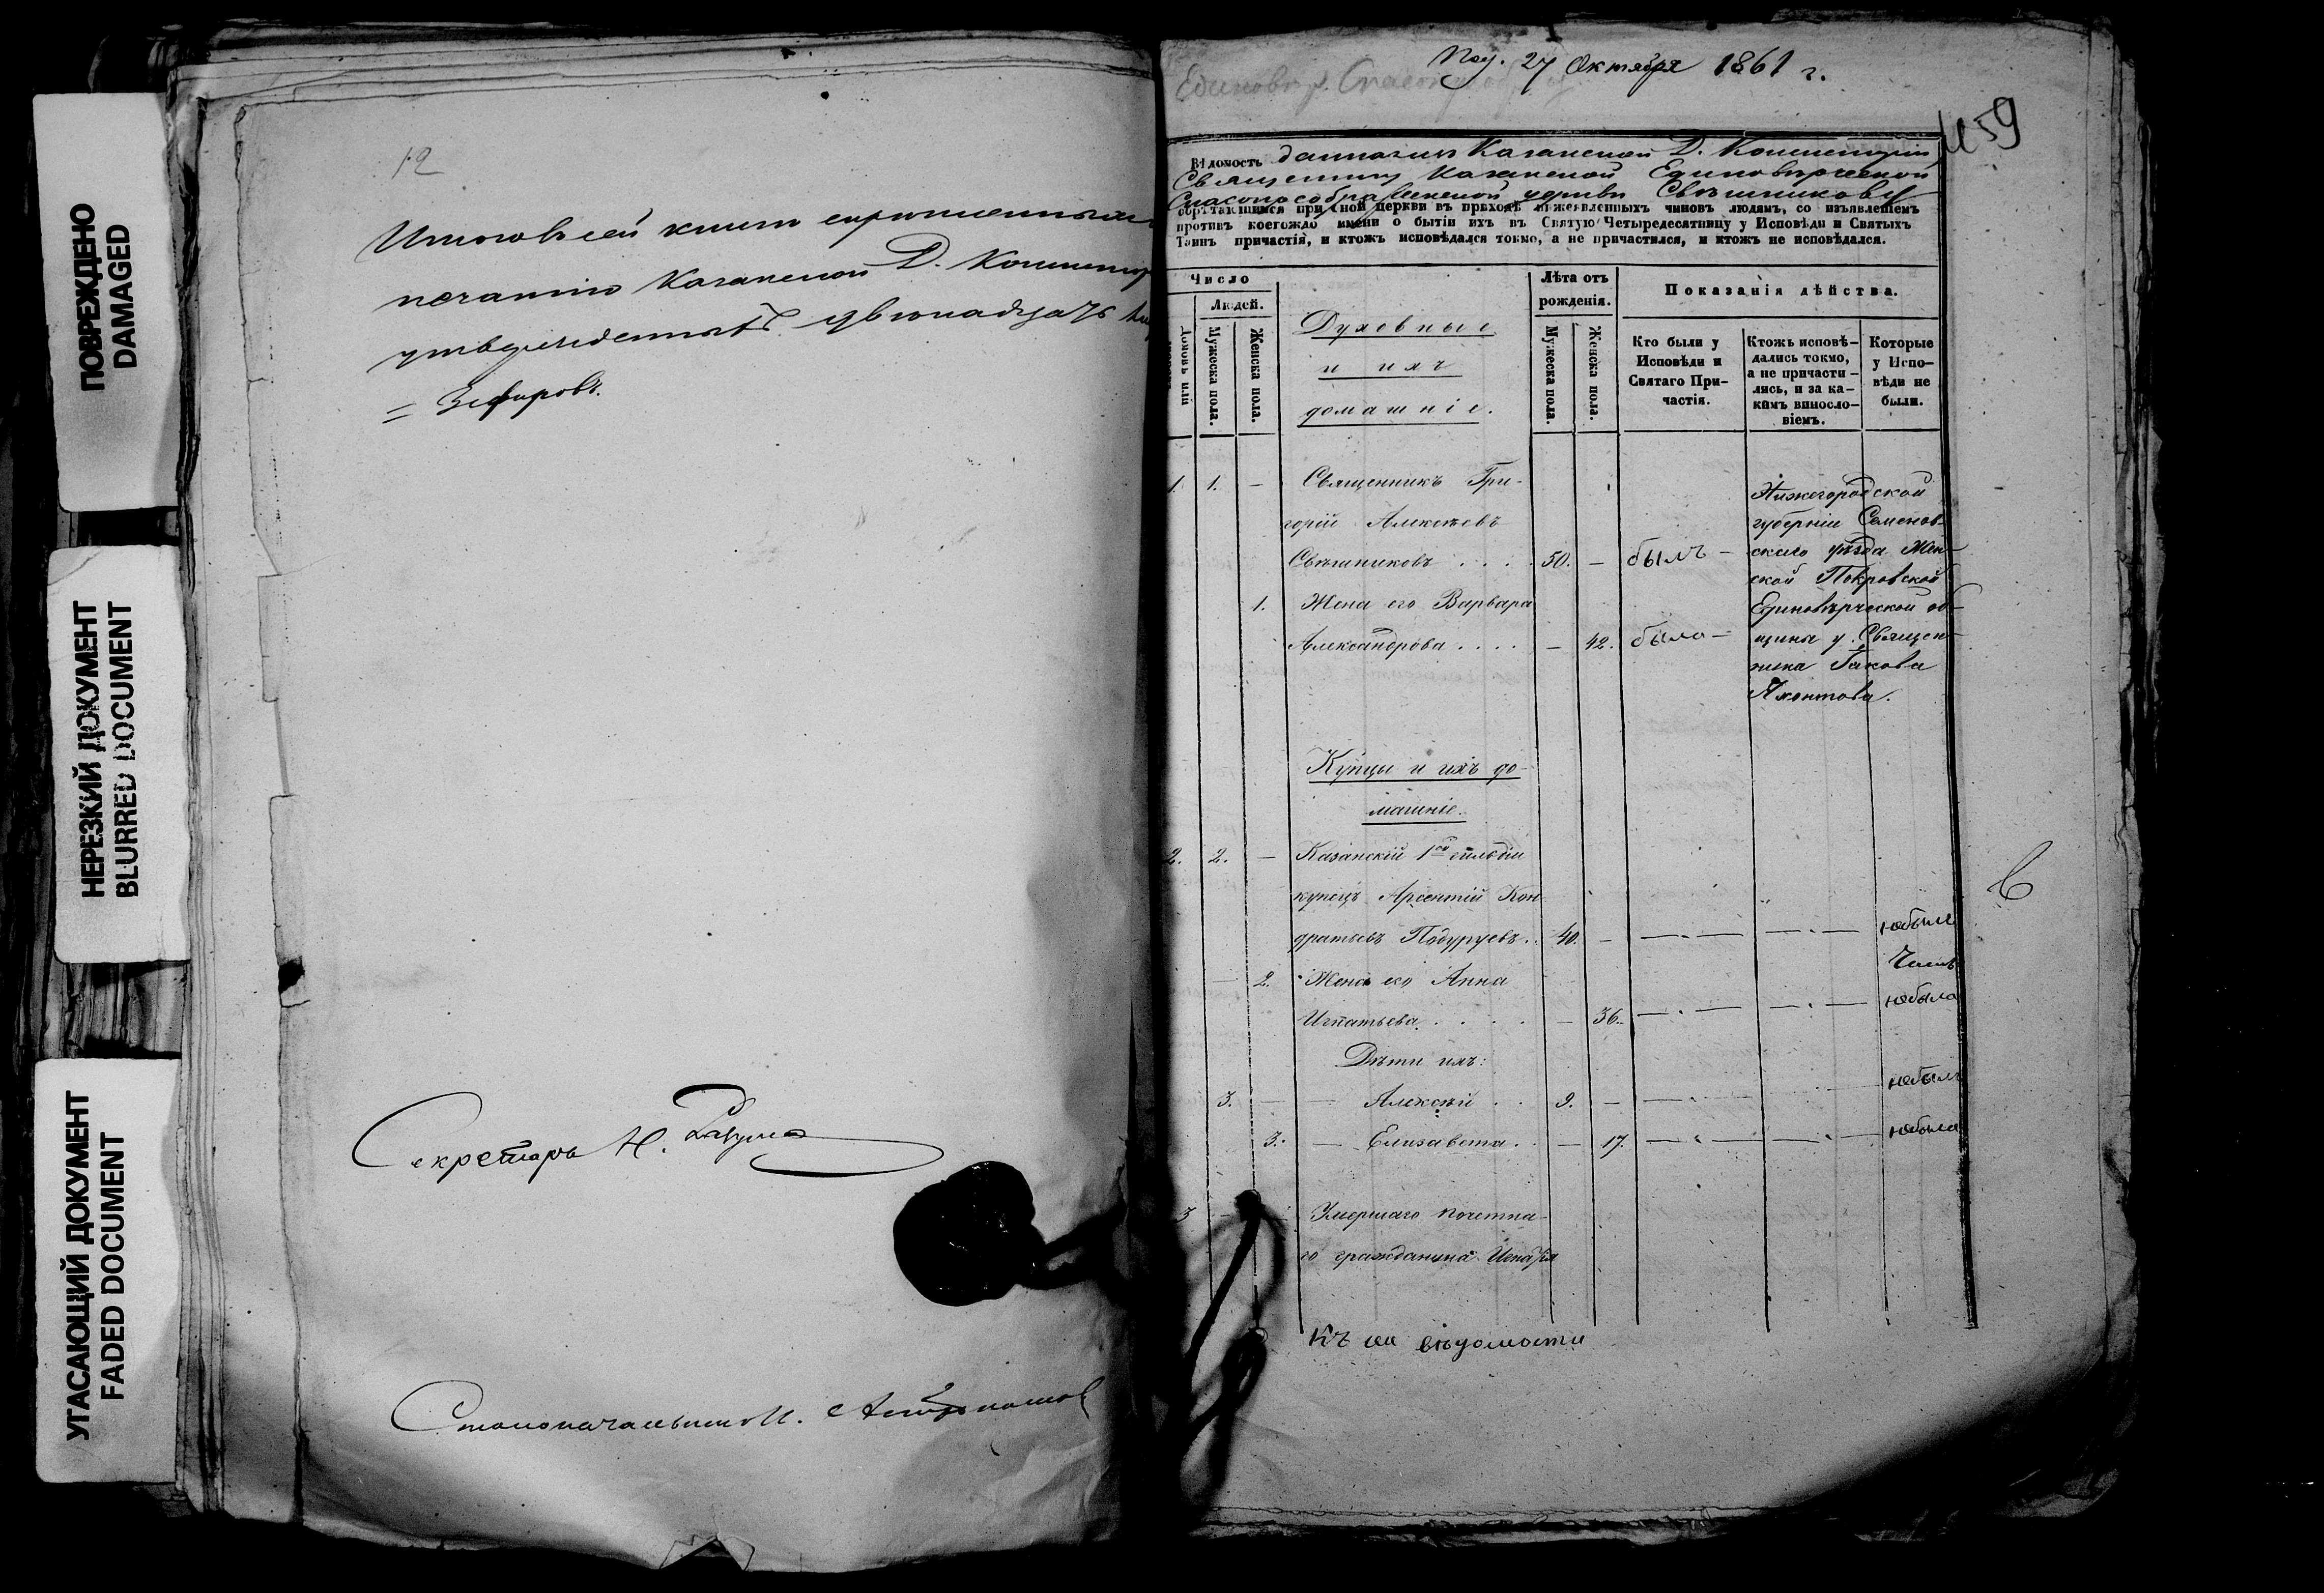 ПОВРЕЖДЕНО
DAMAGED
НЕРЕЗКИЙ ДОКУМЕНТ
BLURRED DOCUMENT
УГАСАЮЩИЙ ДОКУМЕНТ
FADED DOCUMENT
12
Итого в сей книге скрепленныхъ
печатью Казанской Д. Консистор
утвержденныхъ двенадцать
= Зефировъ.
Секретарь Н.
Столоначальникъ
27 Октября 1861 г.
Единовѣр. Спасопр
59
Вѣдомость данная изъ Казанской Д. Консисторіи
Священнику Казанской Единовѣрческой
Спасопреображенской церкви Свѣшникову
обрѣтающимся при сной церкви въ приходѣ нижеявленныхъ чиновъ людямъ, со изъявленіемъ
противъ коегождо имени о бытіи ихъ въ Святую Четыредесятницу у Исповѣди и Святыхъ
Таинъ причастія, и ктожъ исповѣдался токмо, а не причастился, и ктожъ не исповѣдался.
Число
Людей.
Мужеска пола.
Женска пола.
Духовные
и ихъ
домашніе.
Лѣта отъ
рожденія.
Мужеска пола.
Женска пола.
Показанія дѣйства.
Кто были у
Исповѣди и
Святаго При-
частія.
Ктожъ исповѣ-
дались токмо,
а не причасти-
лись, и за ка-
кимъ винosло-
віемъ.
Которые
у Испо-
вѣди не
были.
1. 1. — Священникъ Гри-
горій Алексѣевъ
Свѣшниковъ . . . . 50. — былъ —
1. Жена его Варвара
Александрова . . . . — 42. была —
Нижегородской
губерніи Семенов-
скаго уѣзда Жен-
ской Покровской
Единовѣрческой об-
щины у Священ-
ника Іакова
Яхонтова.
Купцы и ихъ до-
машніе.
2. 2. — Казанскій 1ой гильдіи
купецъ Арсентій Кон-
дратьевъ Подуруевъ . . 40. — — . — — . — небылъ
— 2. Жена его Анна
Игнатьева . . . . — 36. — . — — . — небыла
Дѣти ихъ:
3. — — Алексѣй . . 9. — — . — небылъ
3. — Елизавета . . — 17. — . — — . — небыла
3 Умершаго почетна-
го гражданина
Къ сей вѣдомости